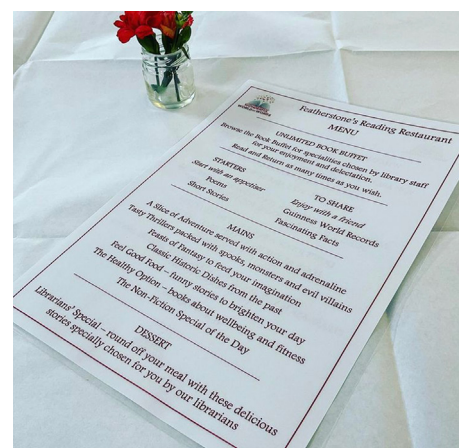 Featherstone's Reading Restaurant
MENU
UNLIMITED BOOK BUFFET
Browse the Book Buffet for specialities chosen by library staff
for your enjoyment and delectation.
Read and Return as many times as you wish.
STARTERS
Start with an appetiser
Poems
Short Stories
TO SHARE
Enjoy with a friend
Guinness World Records
Fascinating Facts
MAINS
A Slice of Adventure served with action and adrenaline
Tasty Thrillers packed with spooks, monsters and evil villains
Feasts of Fantasy to feed your imagination
Classic Historic Dishes from the past
Feel Good Food – funny stories to brighten your day
The Healthy Option – books about wellbeing and fitness
The Non-Fiction Special of the Day
DESSERT
Librarians' Special – round off your meal with these delicious
stories specially chosen for you by our librarians